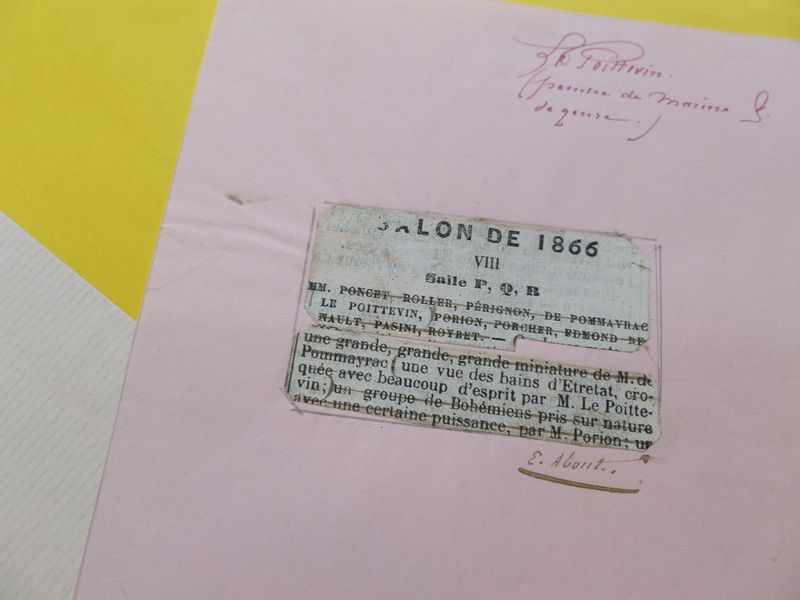 Le Poittevin.
peintre de marine &
de genre.
SALON DE 1866
VIII
Salle P, Q, R
MM. PONCET, ROLLER, PÉRIGNON, DE POMMAYRAC
LE POITTEVIN, PORION, PORCHER, EDMOND DE
NAULT, PASINI, ROYBET. —
une grande, grande, grande miniature de M. de
Pommayrac une vue des bains d'Etretat, cro-
quée avec beaucoup d'esprit par M. Le Poitte-
vin; un groupe de Bohémiens pris sur nature
avec une certaine puissance, par M. Porion; un
E. About.